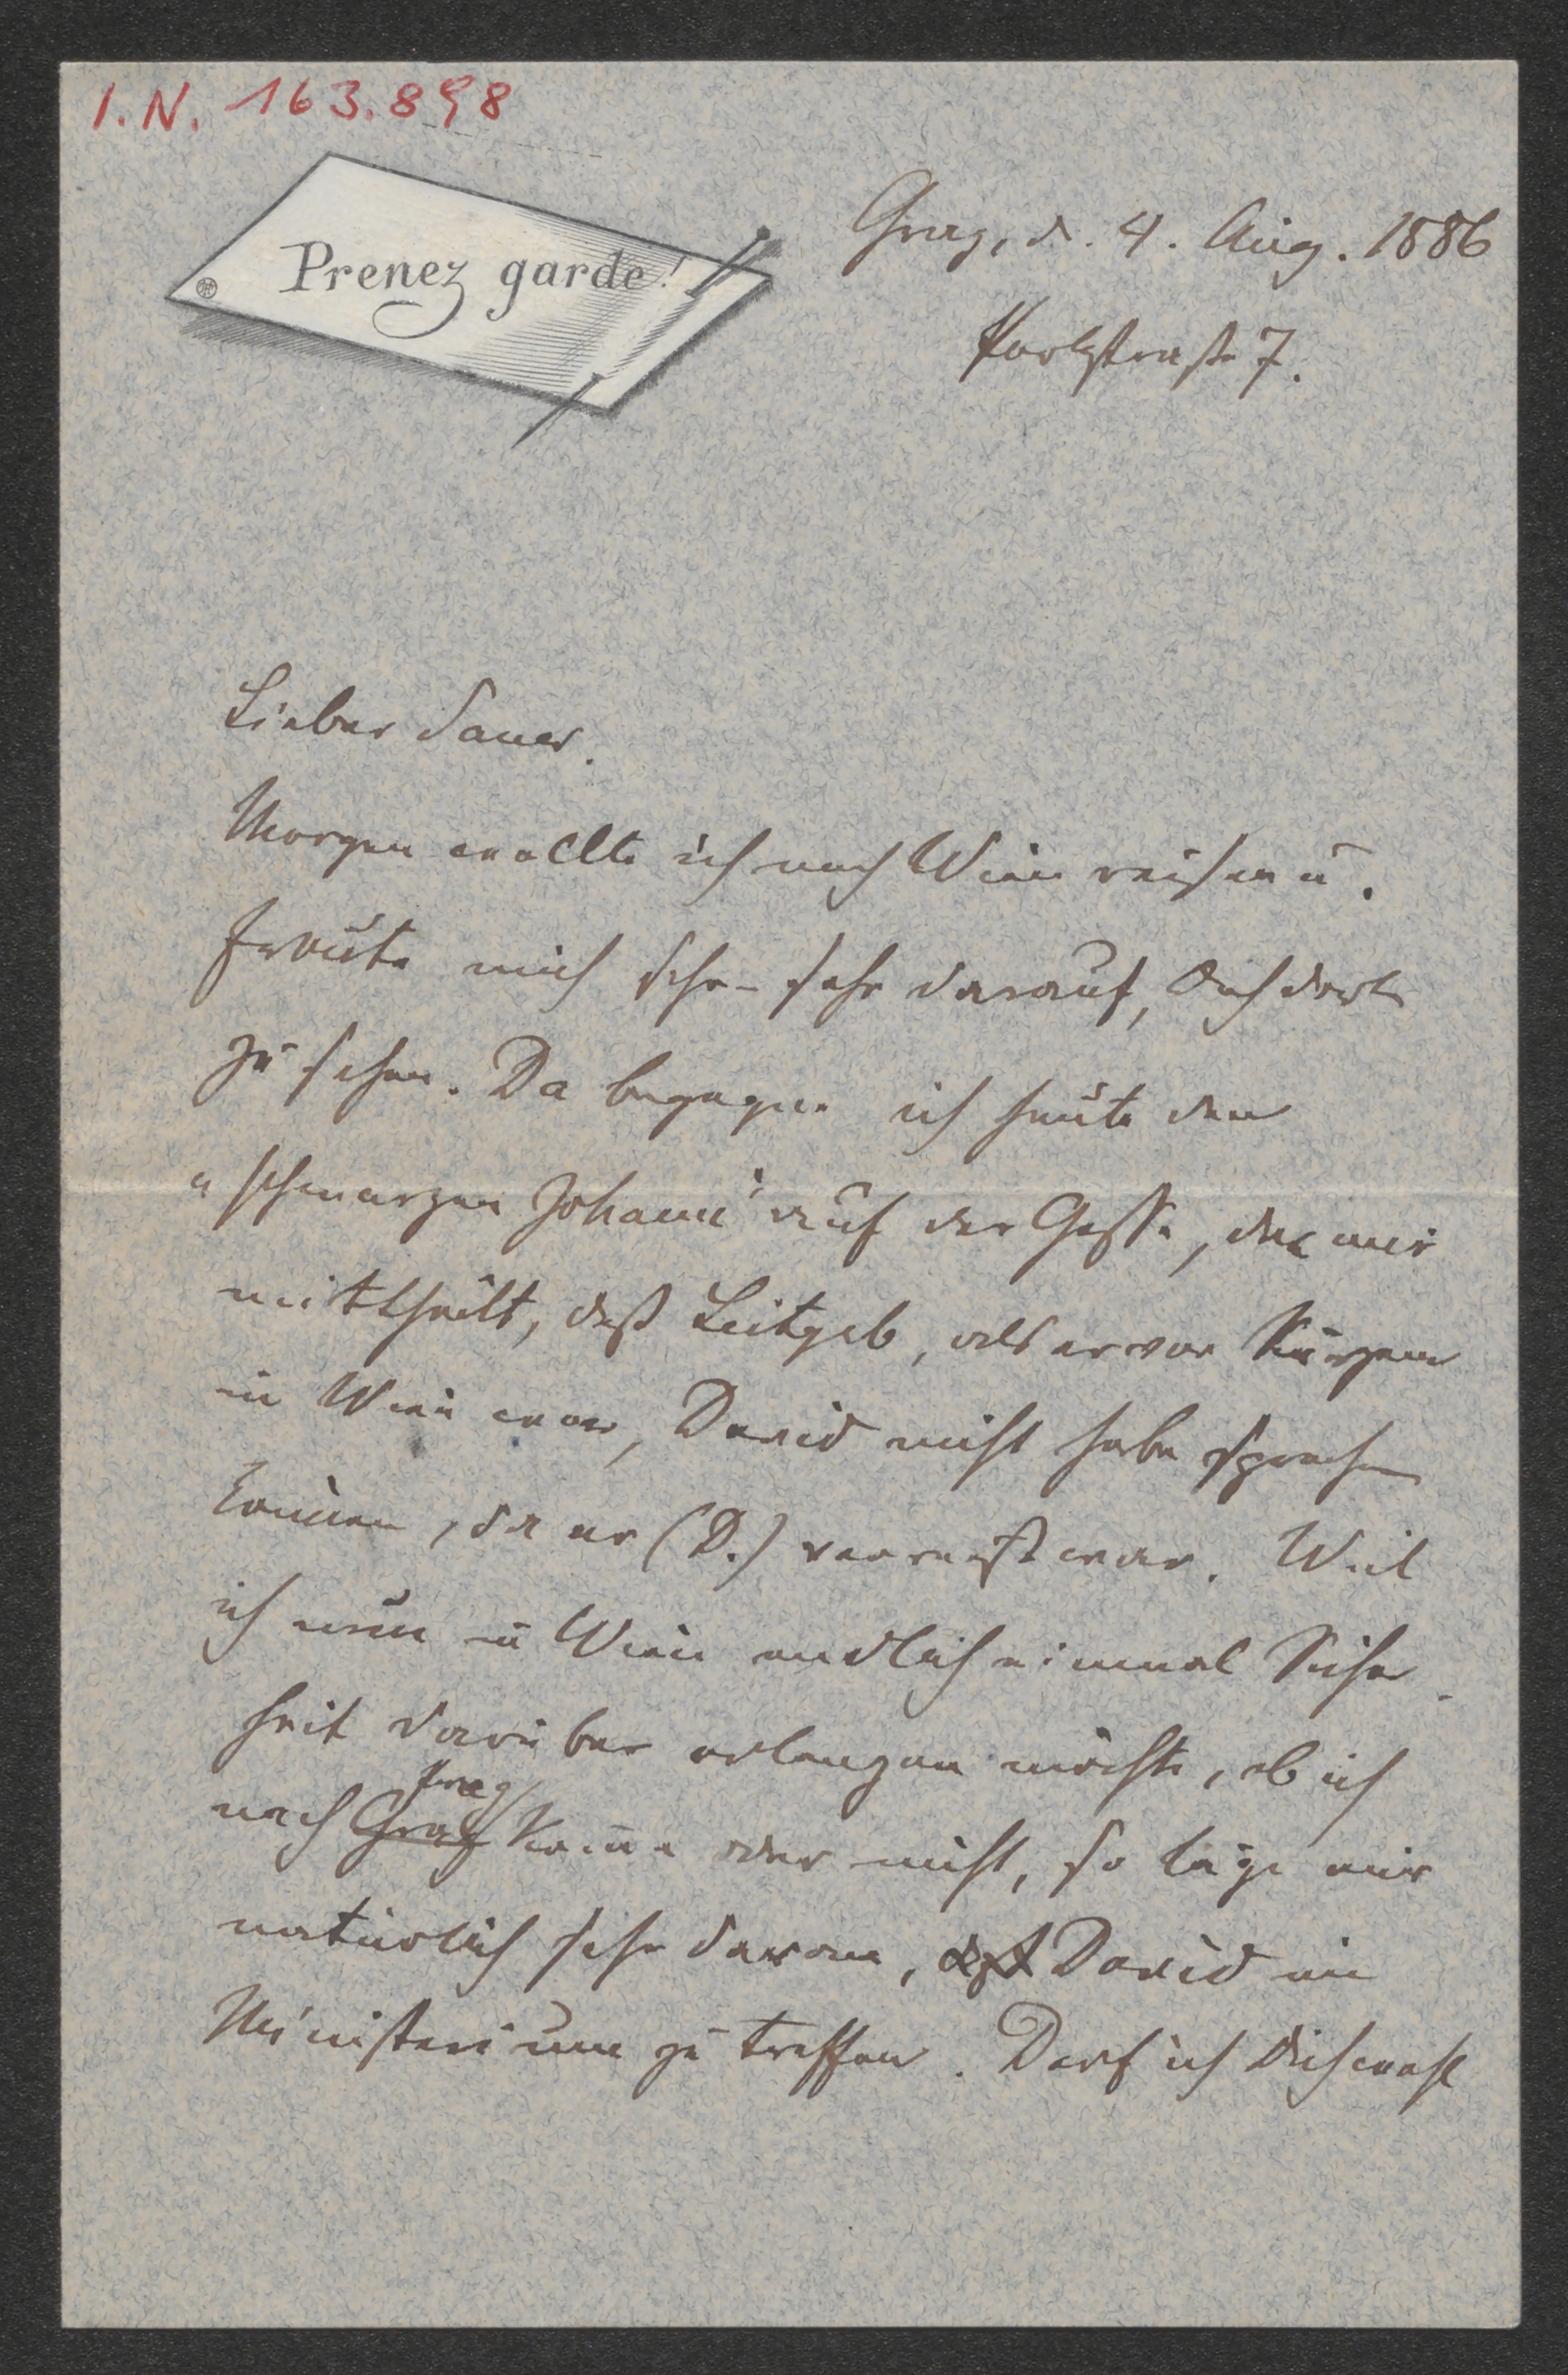 I. N. 163.898
Prenez garde!
Graz, d. 4. Aug. 1886
Parkstraße 7.
Lieber Sauer.
Morgen wollte ich nach Wien reisen u.
freute mich sehr – sehr darauf, Dich dort
zu sehen. Da begegne ich heute den
„schwarzen Johann“ auf der Gasse, der mir
mittheilt, daß Leitgeb, als er vor Kurzem
in Wien war, David nicht habe sprechen
können, da er (D.) verreist war. Weil
ich nun in Wien endlich einmal Sicher
heit darüber erlangen möchte, ob ich
nach Graz Prag komme oder nicht, so läge mir
natürlich sehr daran, David im
Ministerium zu treffen. Darf ich Dich wohl